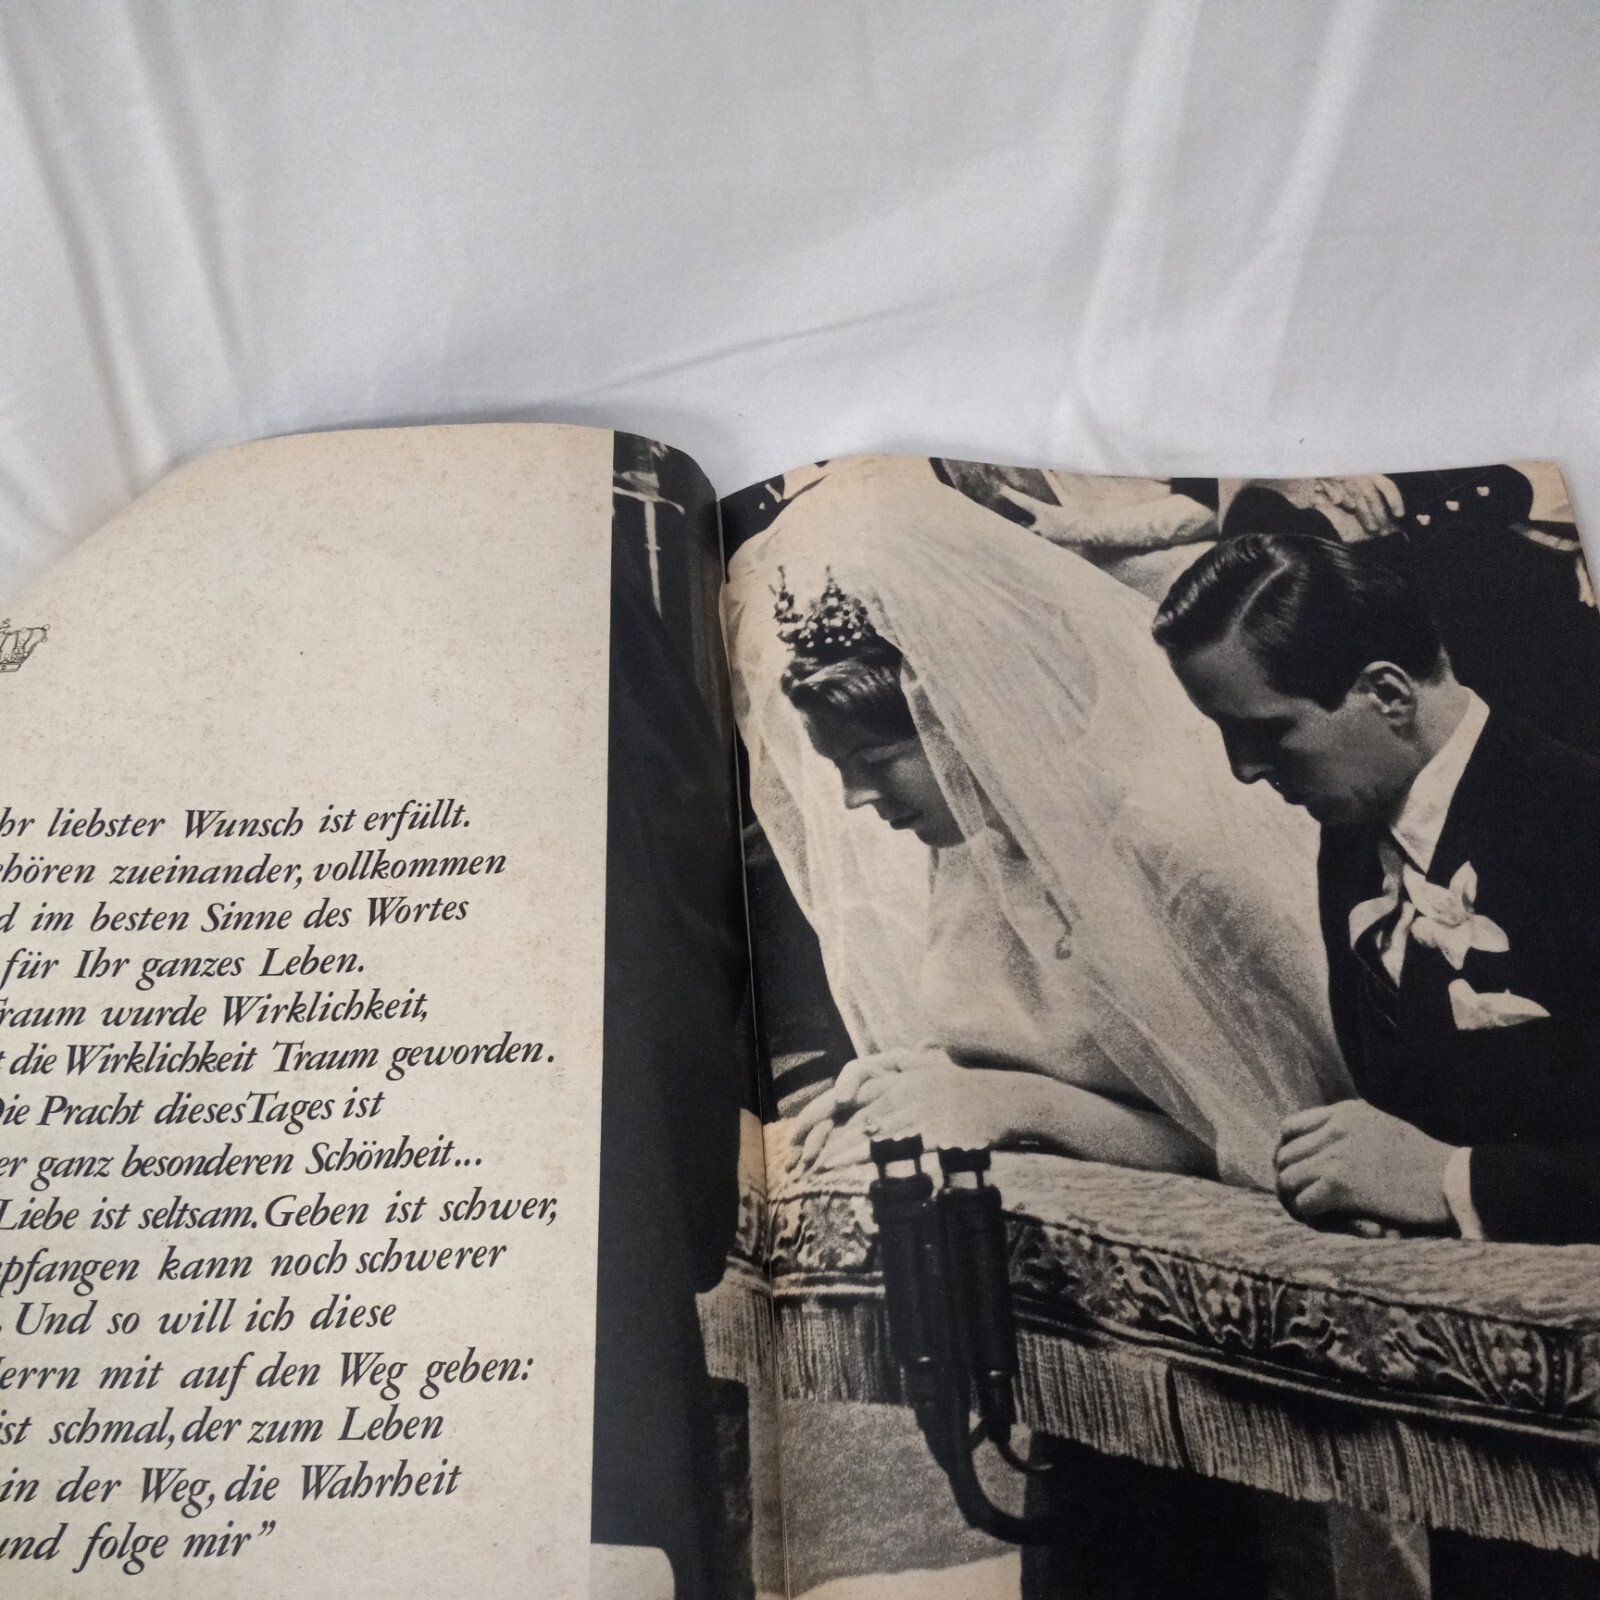 liebster Wunsch ist erfüllt.
zueinander, vollkommen
im besten Sinne des Wortes
für Ihr ganzes Leben.
wurde Wirklichkeit,
die Wirklichkeit Traum geworden.
Pracht dieses Tages ist
ganz besonderen Schönheit...
Liebe ist seltsam. Geben ist schwer,
kann noch schwerer
. Und so will ich diese
mit auf den Weg geben:
schmal, der zum Leben
in der Weg, die Wahrheit
und folge mir”